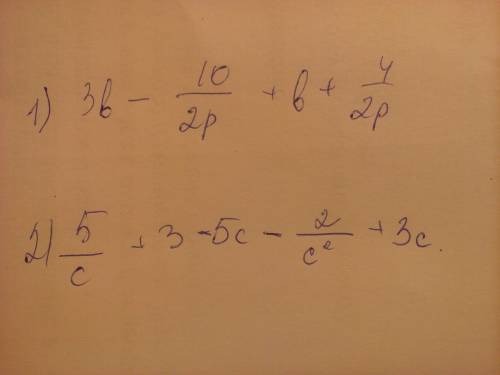 1) 3b - 10/2p + b + 4/2p
2) 5/c + 3 - 5c - 2/c² + 3c.